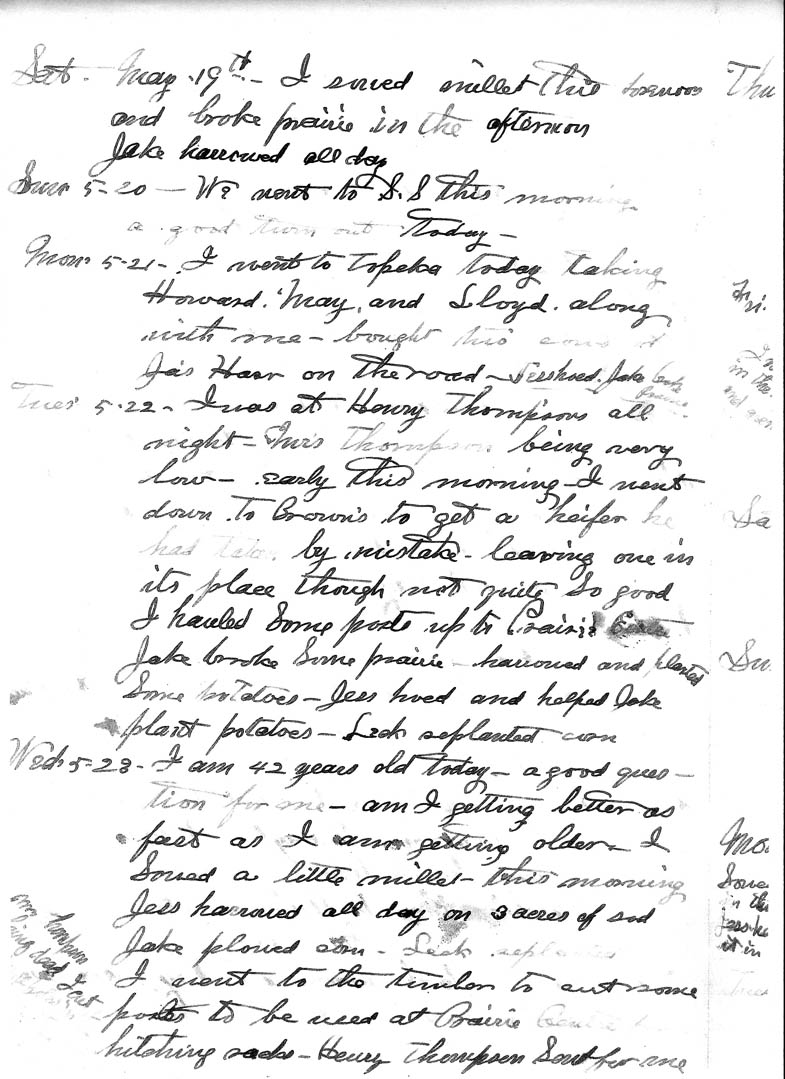 Sat - May 19th - I sowed millet this forenoon
and broke prairie in the afternoon
Jake harrowed all day
Sun 5-20 - We went to S.S this morning
a good turn out today -
Mon 5-21 - I went to Topeka today taking
Howard, May, and Lloyd along
with me - bought this
Jas Haer on the road - Jess hoed. Jake
Tues 5-22 - I was at Henry Thompsons all
night - Mrs Thompson being very
low - early this morning - I went
down to Browns to get a heifer he
had taken by mistake - leaving one in
its place though not quite so good
I hauled some posts up to Prairie
Jake broke some prairie - harrowed and planted
Some potatoes - Jess hoed and helped Jake
plant potatoes - Leck replanted corn
Wed 5-23 - I am 42 years old today - a good ques -
tion for me - am I getting better as
fast as I am getting older - I
Sowed a little millet - this morning
Jess harrowed all day on 3 acres of sod
Jake plowed corn - Leck replanted
I went to the timber to cut some
posts to be used at Prairie
hitching racks - Henry Thompson Sent for me
Thu
Fri.
in the
Sa
Su
Mo
Sowe
in th
Jess ha
it in